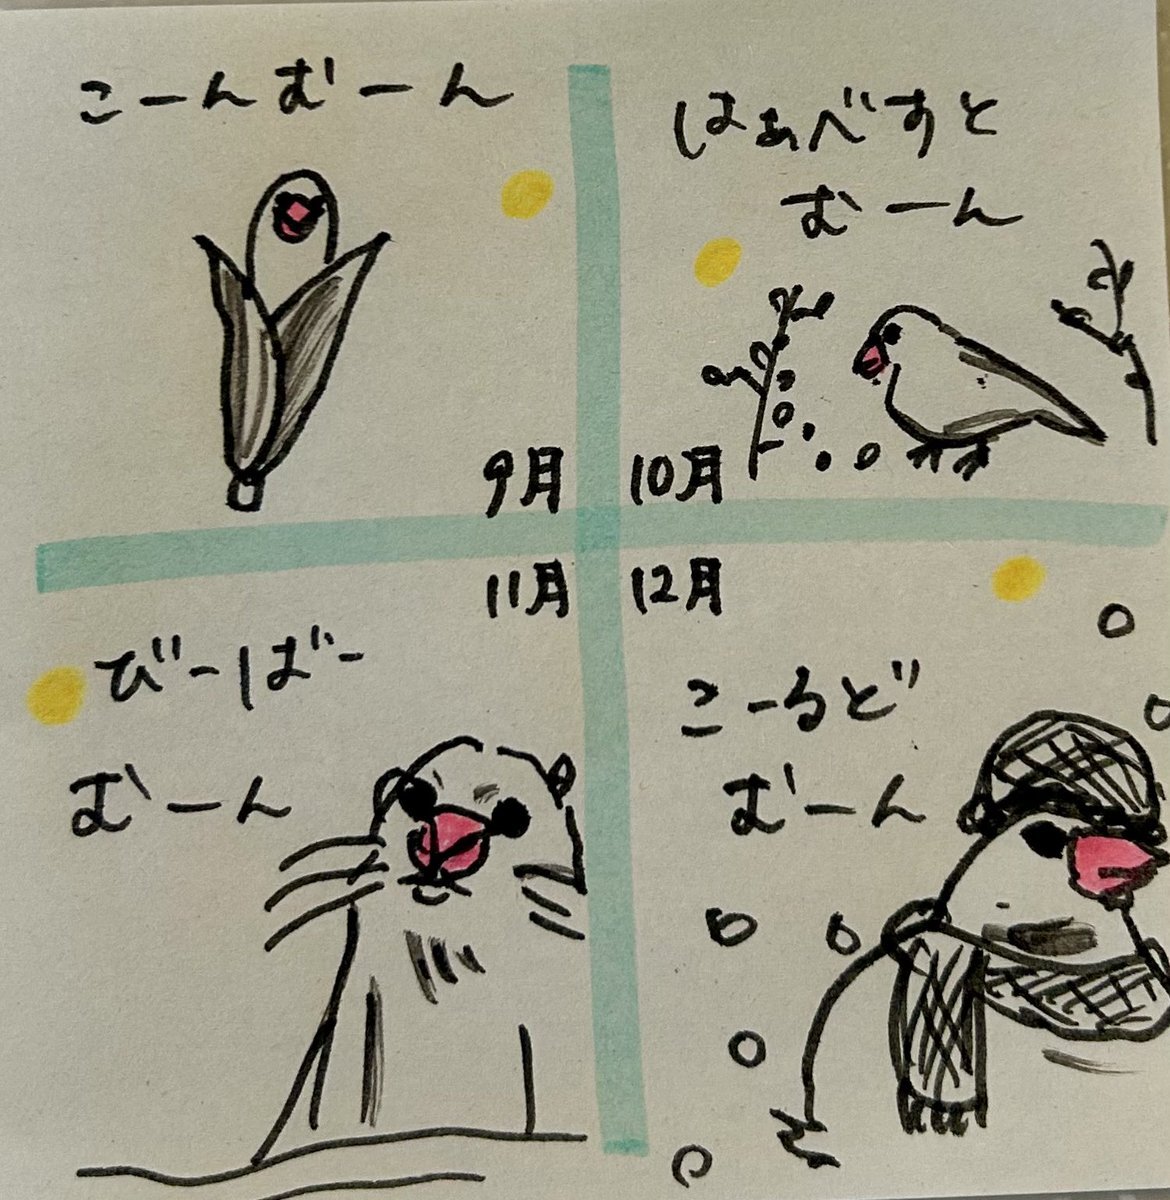 こーんむーん
9月
はぁべすと
むーん
10月
11月
びーばー
むーん
12月
こーるど
むーん